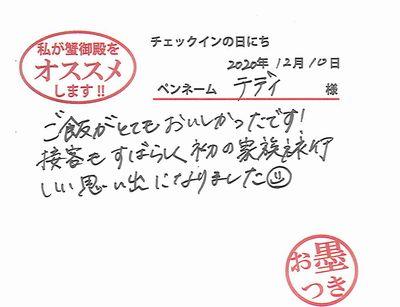 私が蟹御殿を
オススメ
します!!
チェックインの日にち
2020年 12月 10日
ペンネーム テディ 様
ご飯がとてもおいしかったです!
接客もすばらしく初の家族旅行
いい思い出になりました
お墨
つき